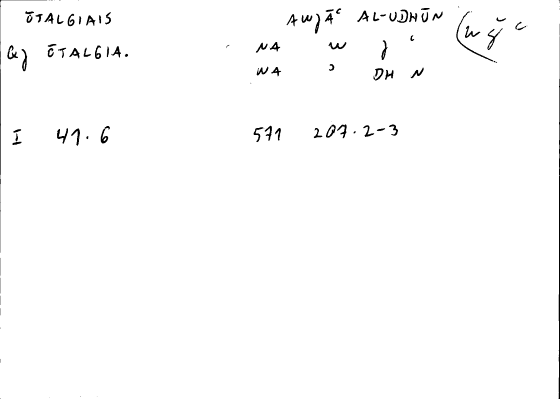 ŌTALGIAIS
AWJĀʿ AL-UDHŪN
(w ǧ ʿ
Gj ŌTALGIA.
NA w j ʿ
NA ʾ DH N
I 41.6 571 207.2-3